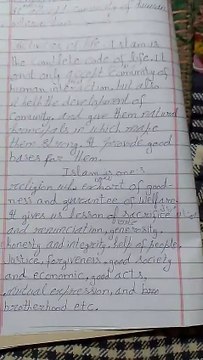 of life. Islam is
the complete code of life. It
not only community of
human interaction, but also
it both the development of
Comunity, and give them natural
principals in which make
them strong. It provide good
bases for them.
Islam is one's
religion who exhort of good-
ness and guarantee of welfare.
It gives us lesson of sacrifice
and renunciation, generosity,
honesty and integrity, help of people,
Justice, forgiveness, good society
and economic, good acts,
mutual expression, and
brotherhood etc.